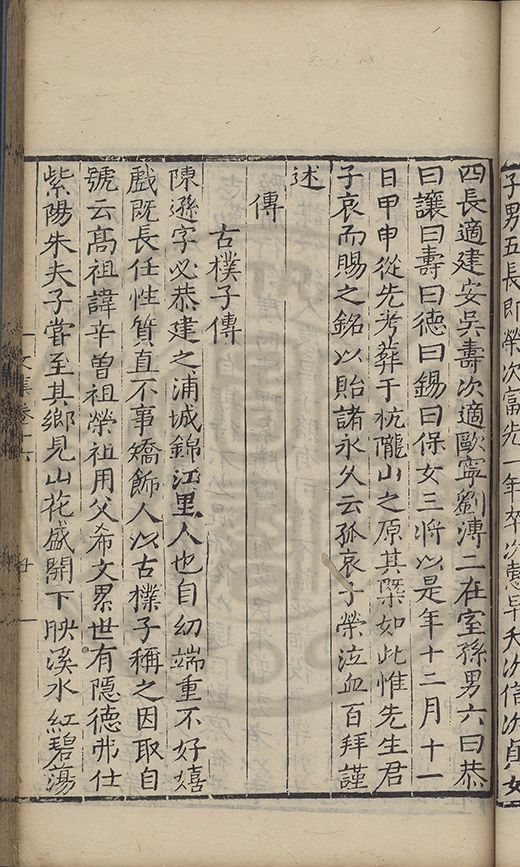 子男五長即榮次富先一年卒次慧早夭次信次貞女
四長適建安吳壽次適歐寧劉溥二在室孫男六曰恭
曰讓曰壽曰德曰錫曰保女三將以是年十二月十一
日甲申從先考葬于杭隴山之原其槩如此惟先生君
子哀而賜之銘以貽諸永久云孤哀子榮泣血百拜謹
述
傳
古樸子傳
陳遜字必恭建之浦城錦江里人也自幼端重不好嬉
戲既長任性質直不事矯飾人以古樸子稱之因取自
號云高祖諱辛曾祖榮祖用父希文累世有隱德弗仕
紫陽朱夫子嘗至其鄉見山花盛開下映溪水紅碧蕩
文集卷十六